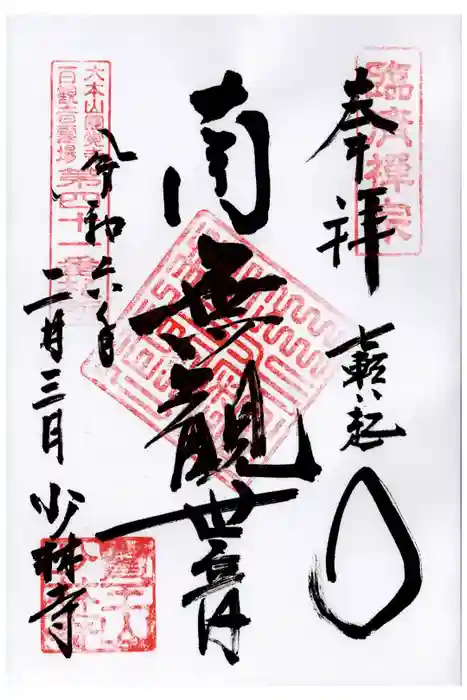 臨濟禪宗
奉拝
七転八起
南無觀世音
大本山圓覚寺
百観音霊場
第四十一番
令和六年
二月三日
少林寺